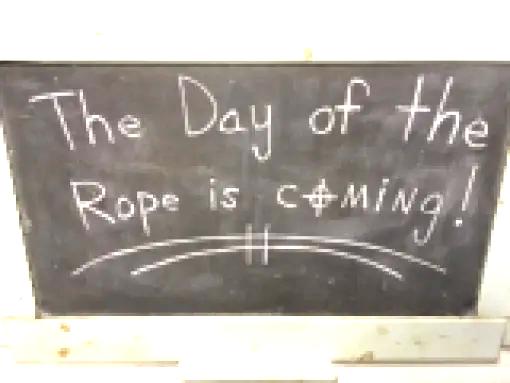 The Day of the
Rope is c⌖MiNg!